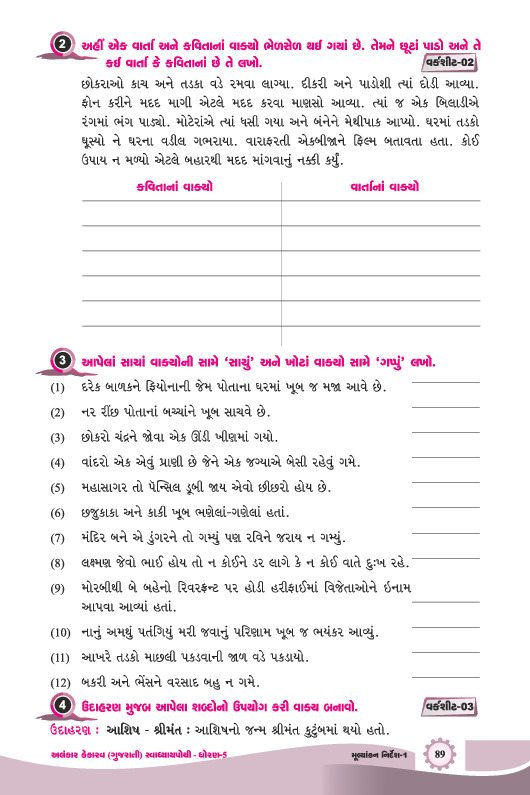 2 અહીં એક વાર્તા અને કવિતાનાં વાક્યો ભેળસેળ થઈ ગયાં છે. તેમને છૂટાં પાડો અને તે
કઈ વાર્તા કે કવિતાનાં છે તે લખો. વર્કશીટ-02
છોકરાઓ કાચ અને તડકા વડે રમવા લાગ્યા. દીકરી અને પાડોશી ત્યાં દોડી આવ્યા.
ફોન કરીને મદદ માગી એટલે મદદ કરવા માણસો આવ્યા. ત્યાં જ એક બિલાડીએ
રંગમાં ભંગ પાડ્યો. મોટેરાંએ ત્યાં ધસી ગયા અને બંનેને મેથીપાક આપ્યો. ઘરમાં તડકો
ઘૂસ્યો ને ઘરના વડીલ ગભરાયા. વારાફરતી એકબીજાને ફિલ્મ બતાવતા હતા. કોઈ
ઉપાય ન મળ્યો એટલે બહારથી મદદ માંગવાનું નક્કી કર્યું.
કવિતાનાં વાક્યો વાર્તાનાં વાક્યો
3 આપેલાં સાચાં વાક્યોની સામે ‘સાચું’ અને ખોટાં વાક્યો સામે ‘ગપ્પું’ લખો.
(1) દરેક બાળકને ફિયોનાની જેમ પોતાના ઘરમાં ખૂબ જ મજા આવે છે.
(2) નર રીંછ પોતાનાં બચ્ચાંને ખૂબ સાચવે છે.
(3) છોકરો ચંદ્રને જોવા એક ઊંડી ખીણમાં ગયો.
(4) વાંદરો એક એવું પ્રાણી છે જેને એક જગ્યાએ બેસી રહેવું ગમે.
(5) મહાસાગર તો પૅન્સિલ ડૂબી જાય એવો છીછરો હોય છે.
(6) છજુકાકા અને કાકી ખૂબ ભણેલાં-ગણેલાં હતાં.
(7) મંદિર બને એ ડુંગરને તો ગમ્યું પણ રવિને જરાય ન ગમ્યું.
(8) લક્ષ્મણ જેવો ભાઈ હોય તો ન કોઈને ડર લાગે કે ન કોઈ વાતે દુઃખ રહે.
(9) મોરબીથી બે બહેનો રિવરફ્રન્ટ પર હોડી હરીફાઈમાં વિજેતાઓને ઇનામ
આપવા આવ્યાં હતાં.
(10) નાનું અમથું પતંગિયું મરી જવાનું પરિણામ ખૂબ જ ભયંકર આવ્યું.
(11) આખરે તડકો માછલી પકડવાની જાળ વડે પકડાયો.
(12) બકરી અને ભેંસને વરસાદ બહુ ન ગમે.
4 ઉદાહરણ મુજબ આપેલા શબ્દોનો ઉપયોગ કરી વાક્ય બનાવો. વર્કશીટ-03
ઉદાહરણ : આશિષ - શ્રીમંત : આશિષનો જન્મ શ્રીમંત કુટુંબમાં થયો હતો.
અલંકાર કેકારવ (ગુજરાતી) સ્વાધ્યાયપોથી - ધોરણ-5 મૂલ્યાંકન નિર્દેશ-૧ 89